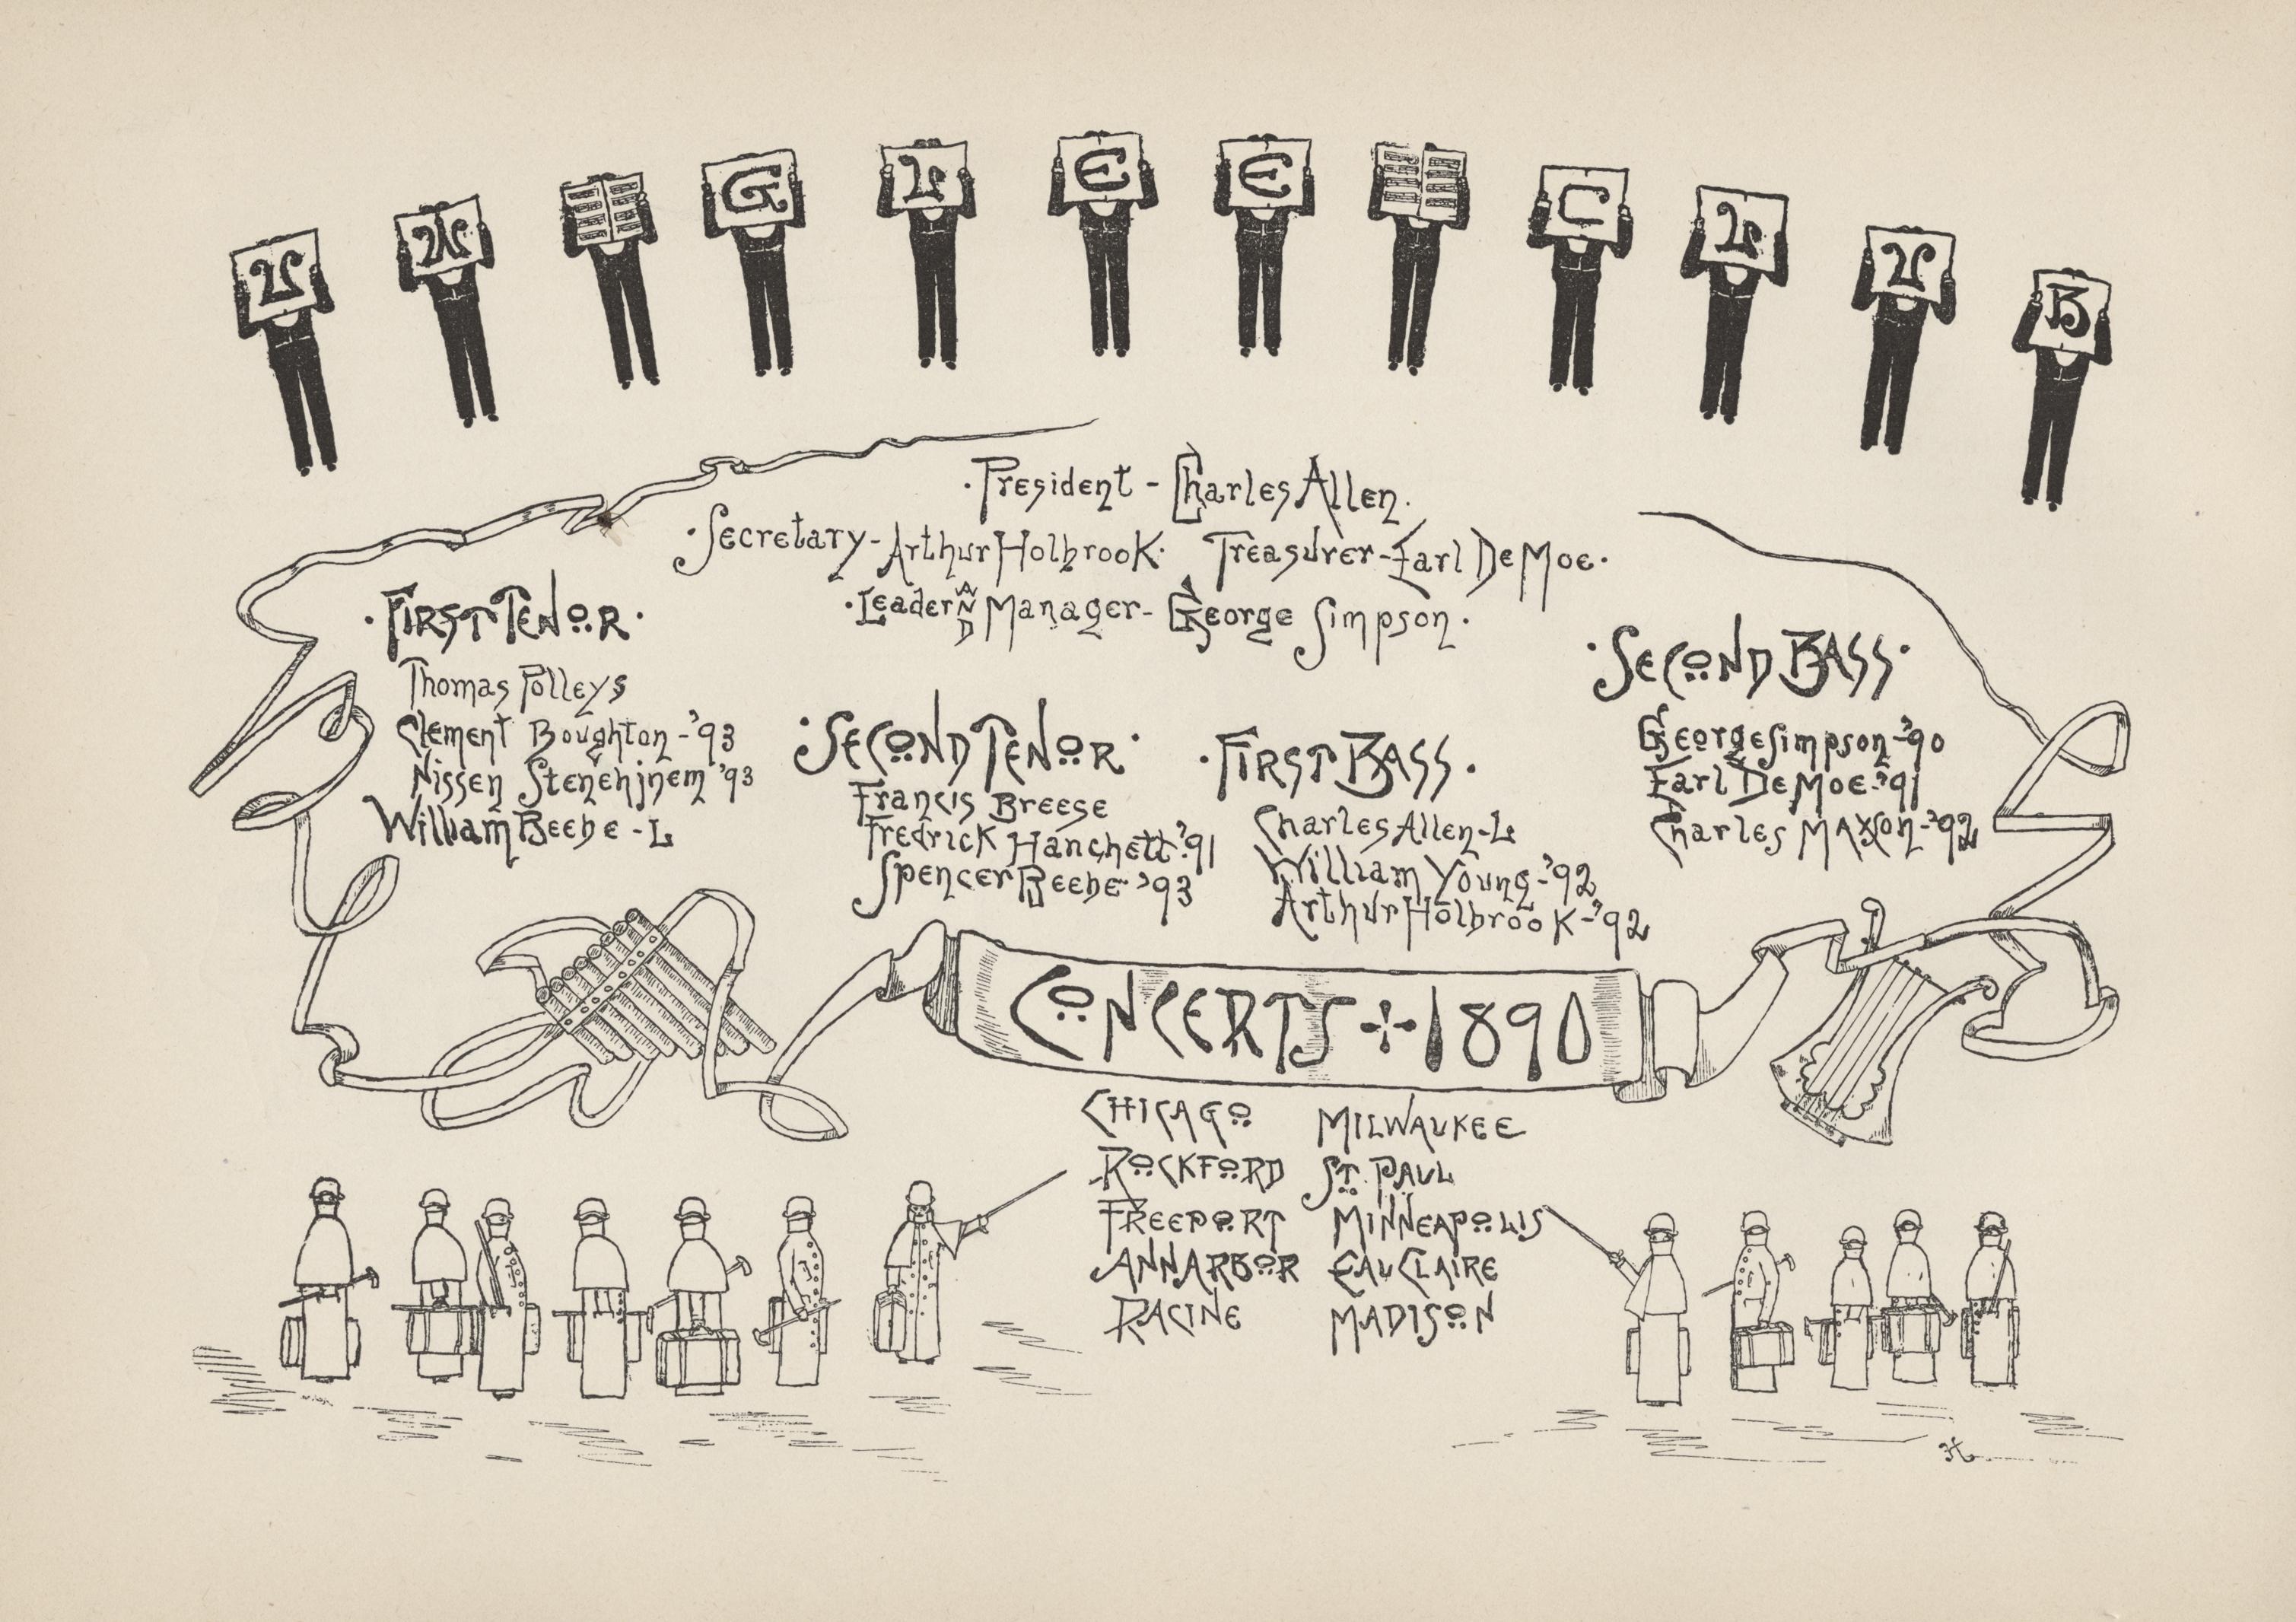 U W GLEE CLUB
·President - Charles Allen.
·Secretary - Arthur Holbrook· Treasurer - Earl De Moe·
·Leader AND Manager - George Simpson·
·FIRST TENOR·
Thomas Polleys
Clement Boughton - '93
Nissen Stenehjnem '93
William Beebe - L
·SECOND TENOR·
Francis Breese
Fredrick Hanchett '91
Spencer Beebe '93
·FIRST BASS·
Charles Allen - L
William Young - '92
Arthur Holbrook - '92
·SECOND BASS·
George Simpson - '90
Earl De Moe - '91
Charles Maxson - '92
CONCERTS + 1890
CHICAGO MILWAUKEE
ROCKFORD ST. PAUL
FREEPORT MINNEAPOLIS
ANN ARBOR EAU CLAIRE
RACINE MADISON
H